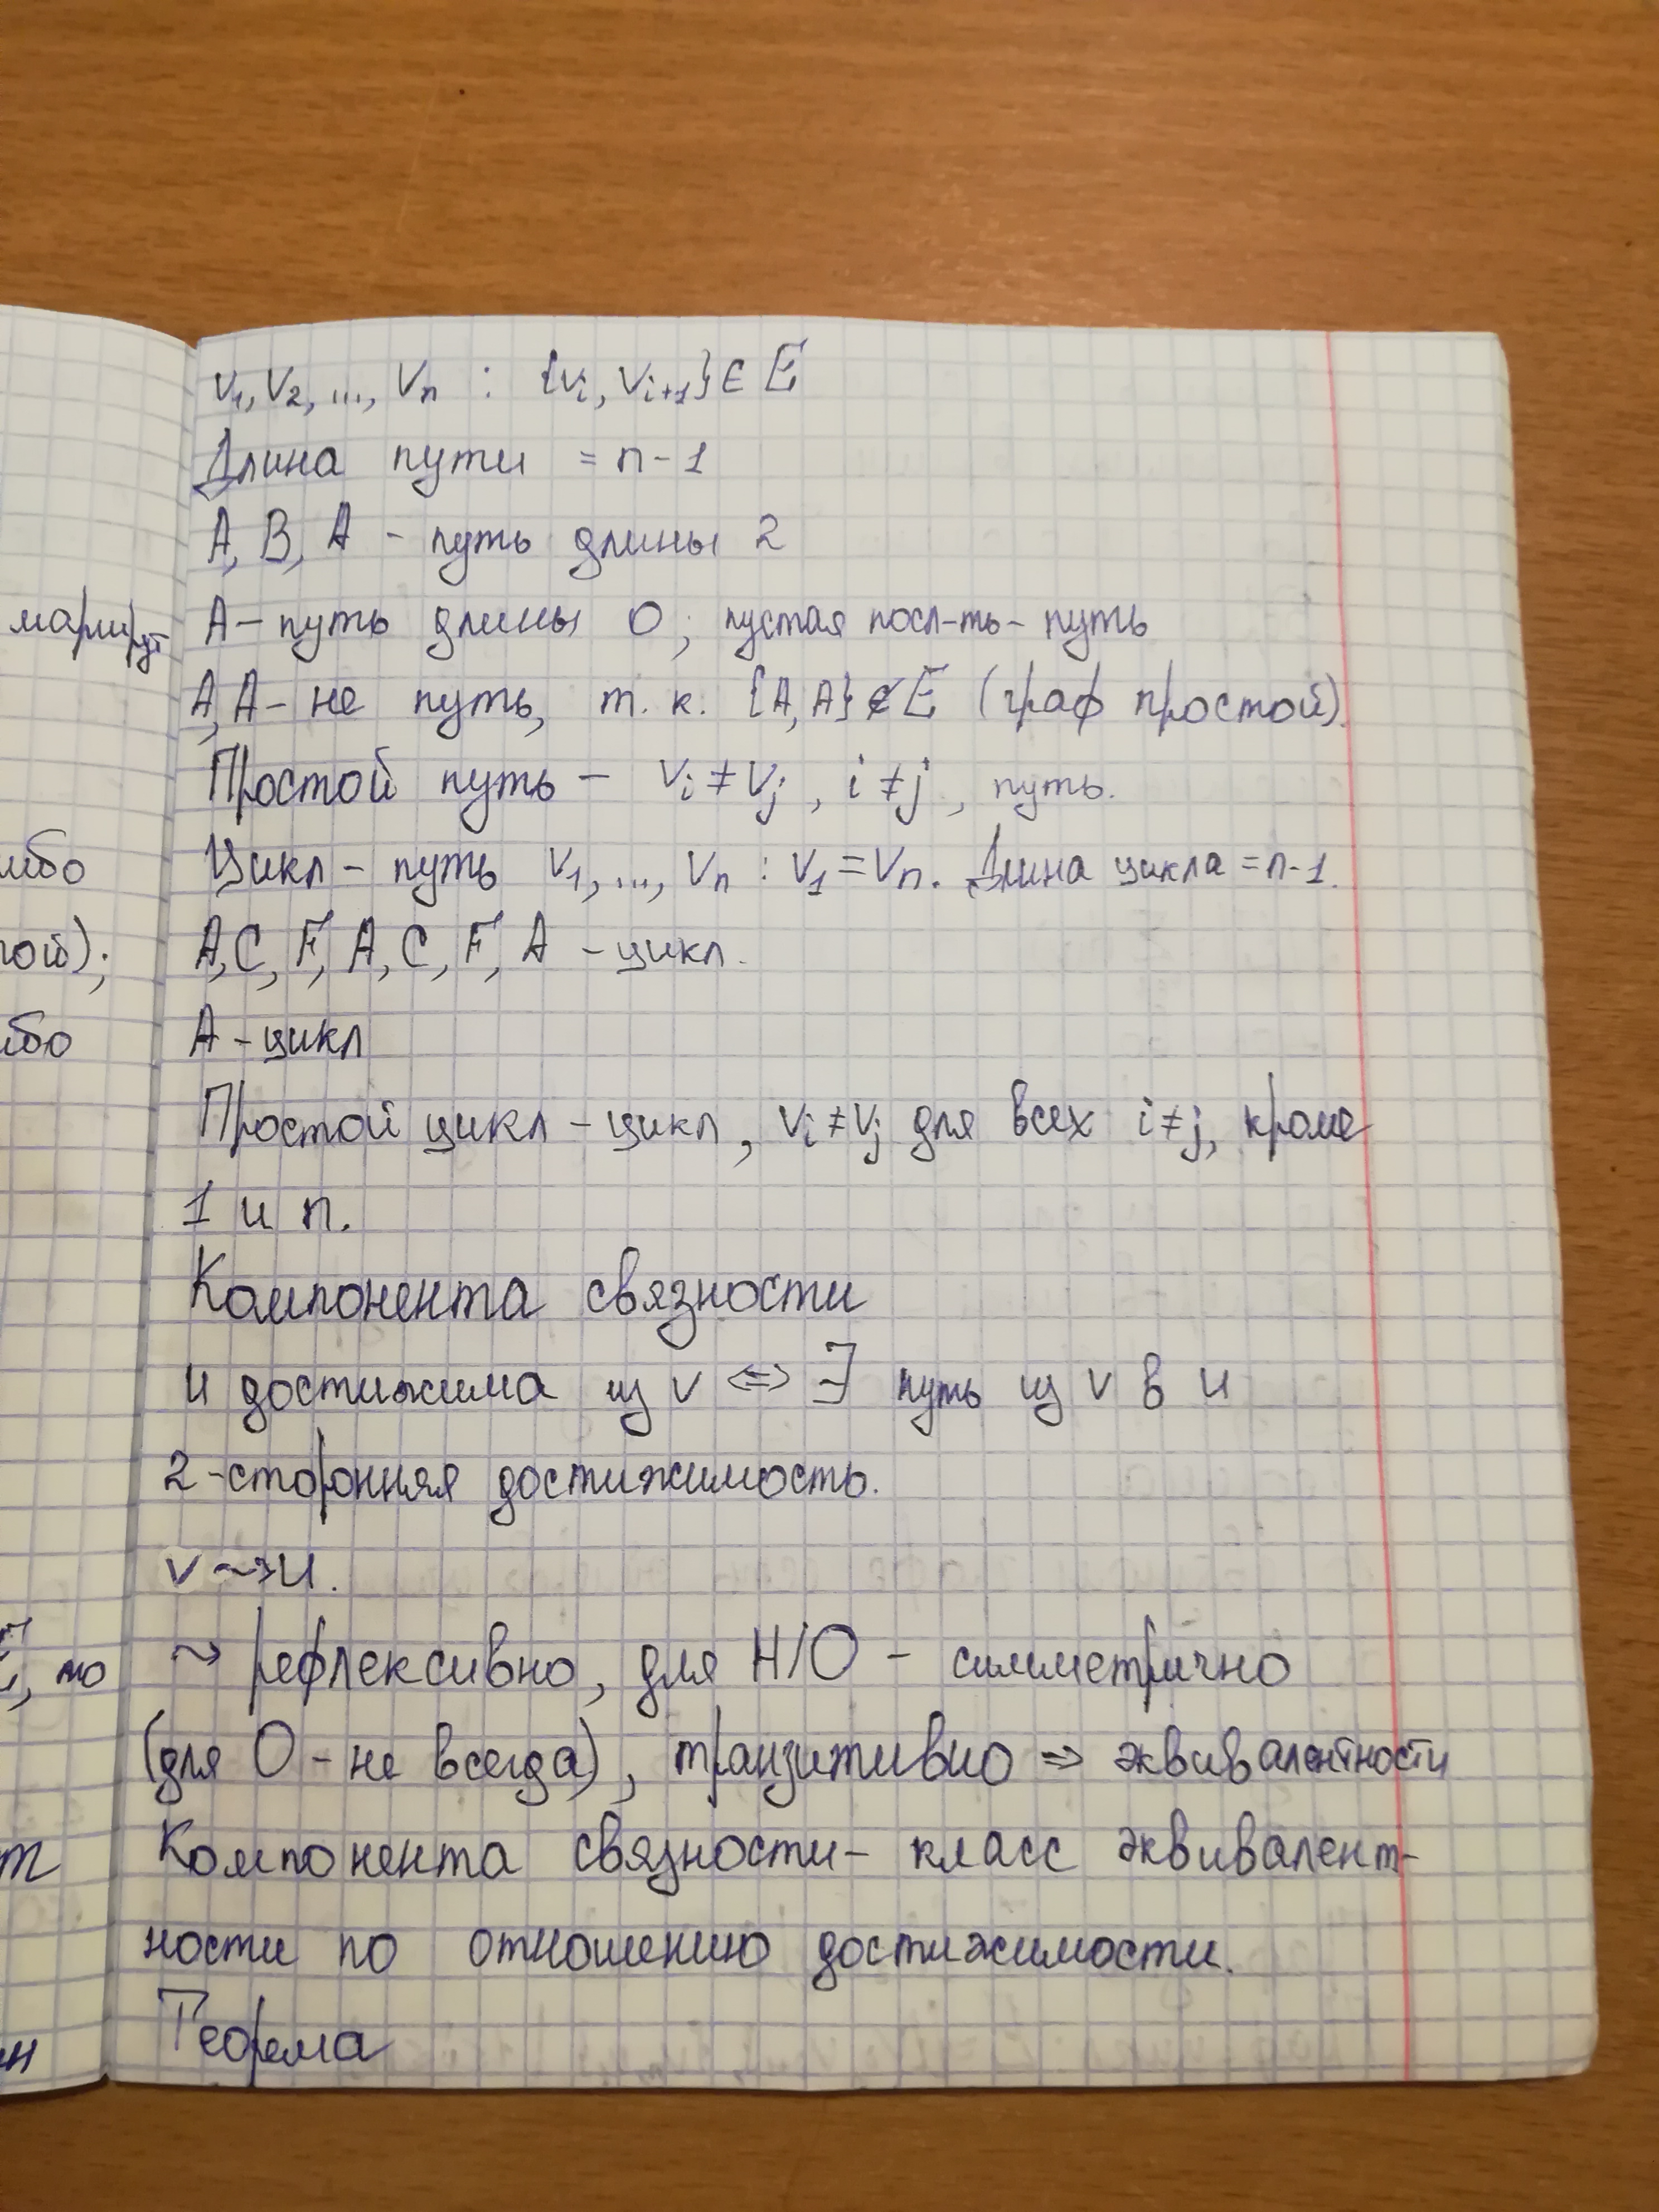 v₁, v₂, ..., vₙ : {vᵢ, vᵢ₊₁} ∈ E
Длина пути = n-1
A, B, A - путь длины 2
маршрут
A - путь длины 0; пустая посл-ть - путь
A, A - не путь, т.к. {A, A} ∉ E (граф простой).
Простой путь - vᵢ ≠ vⱼ, i ≠ j, путь.
либо
Цикл - путь v₁, ..., vₙ : v₁ = vₙ. Длина цикла = n-1.
ой);
A, C, F, A, C, F, A - цикл.
бо
A - цикл
Простой цикл - цикл, vᵢ ≠ vⱼ для всех i ≠ j, кроме
1 и n.
Компонента связности
u достижима из v ⇔ ∃ путь из v в u
2-сторонняя достижимость.
v ⇝ u.
, то
⇝ рефлексивно, для Н/О - симметрично
(для О - не всегда), транзитивно ⇒ эквивалентности
т
Компонента связности - класс эквивалент-
ности по отношению достижимости.
н
Теорема